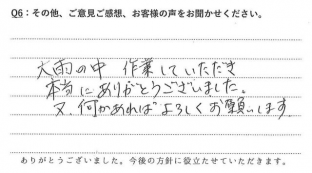 Q6：その他、ご意見ご感想、お客様の声をお聞かせください。
大雨の中 作業していただき
本当にありがとうございました。
又、何かあれば よろしくお願いします
ありがとうございました。今後の方針に役立たせていただきます。